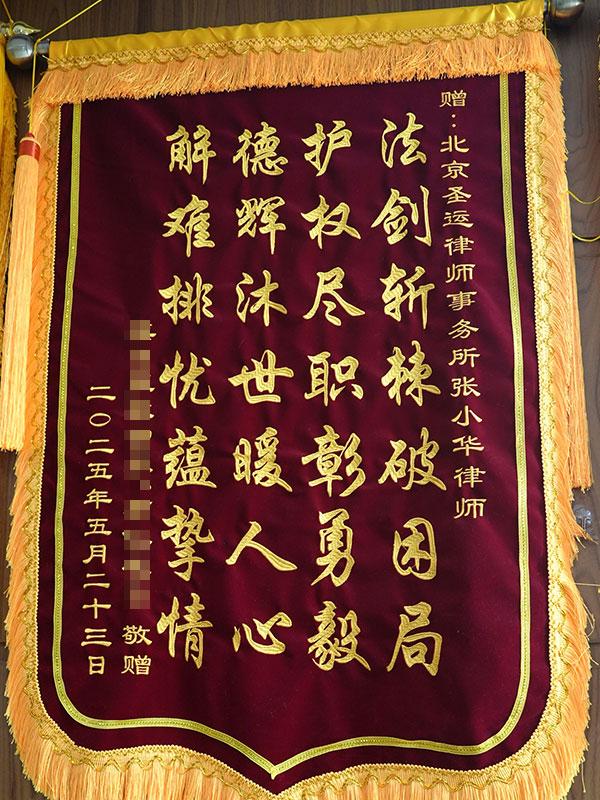 赠：北京圣运律师事务所张小华律师
法剑斩棘破困局
护权尽职彰勇毅
德辉沐世暖人心
解难排忧蕴挚情
敬赠
二〇二五年五月二十三日